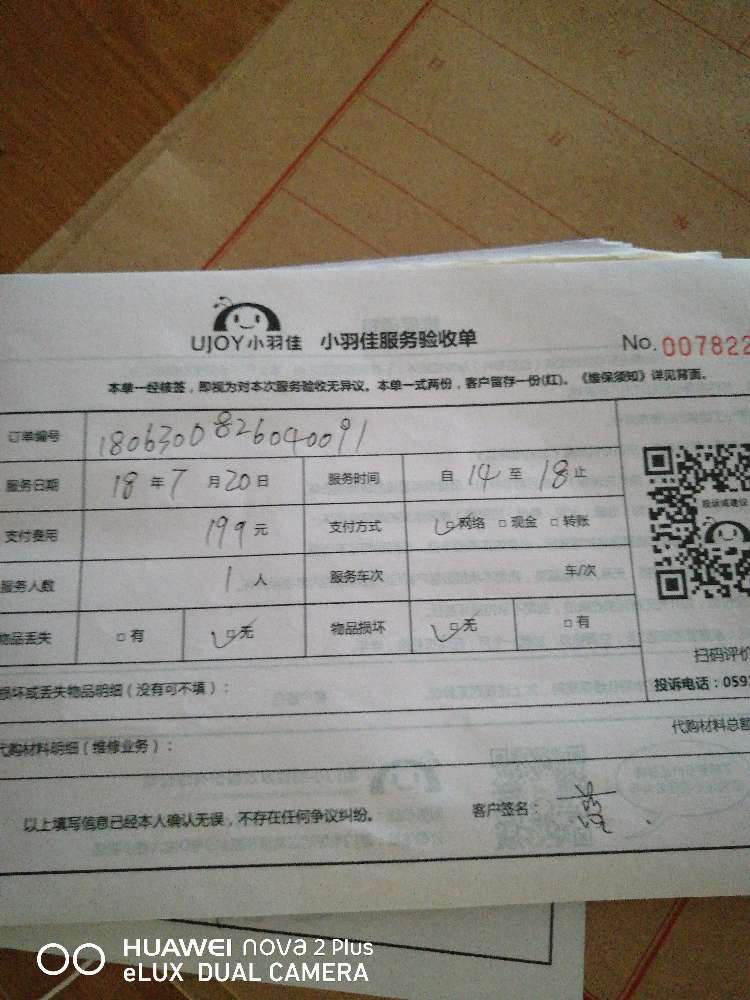 UJOY小羽佳 小羽佳服务验收单 No. 007822
本单一经核签，即视为对本次服务验收无异议。本单一式两份，客户留存一份(红)。《维保须知》详见背面。
订单编号 1806300826040091
服务日期 18 年 7 月 20 日 服务时间 自 14 至 18 止
投诉或建议
支付费用 199 元 支付方式 网络 现金 转账
服务人数 1 人 服务车次 车/次
物品丢失 有 无 物品损坏 无 有
扫码评价
损坏或丢失物品明细（没有可不填）： 投诉电话：059
代购材料明细（维修业务）： 代购材料总额
以上填写信息已经本人确认无误，不存在任何争议纠纷。 客户签名：
HUAWEI nova 2 Plus
eLUX DUAL CAMERA